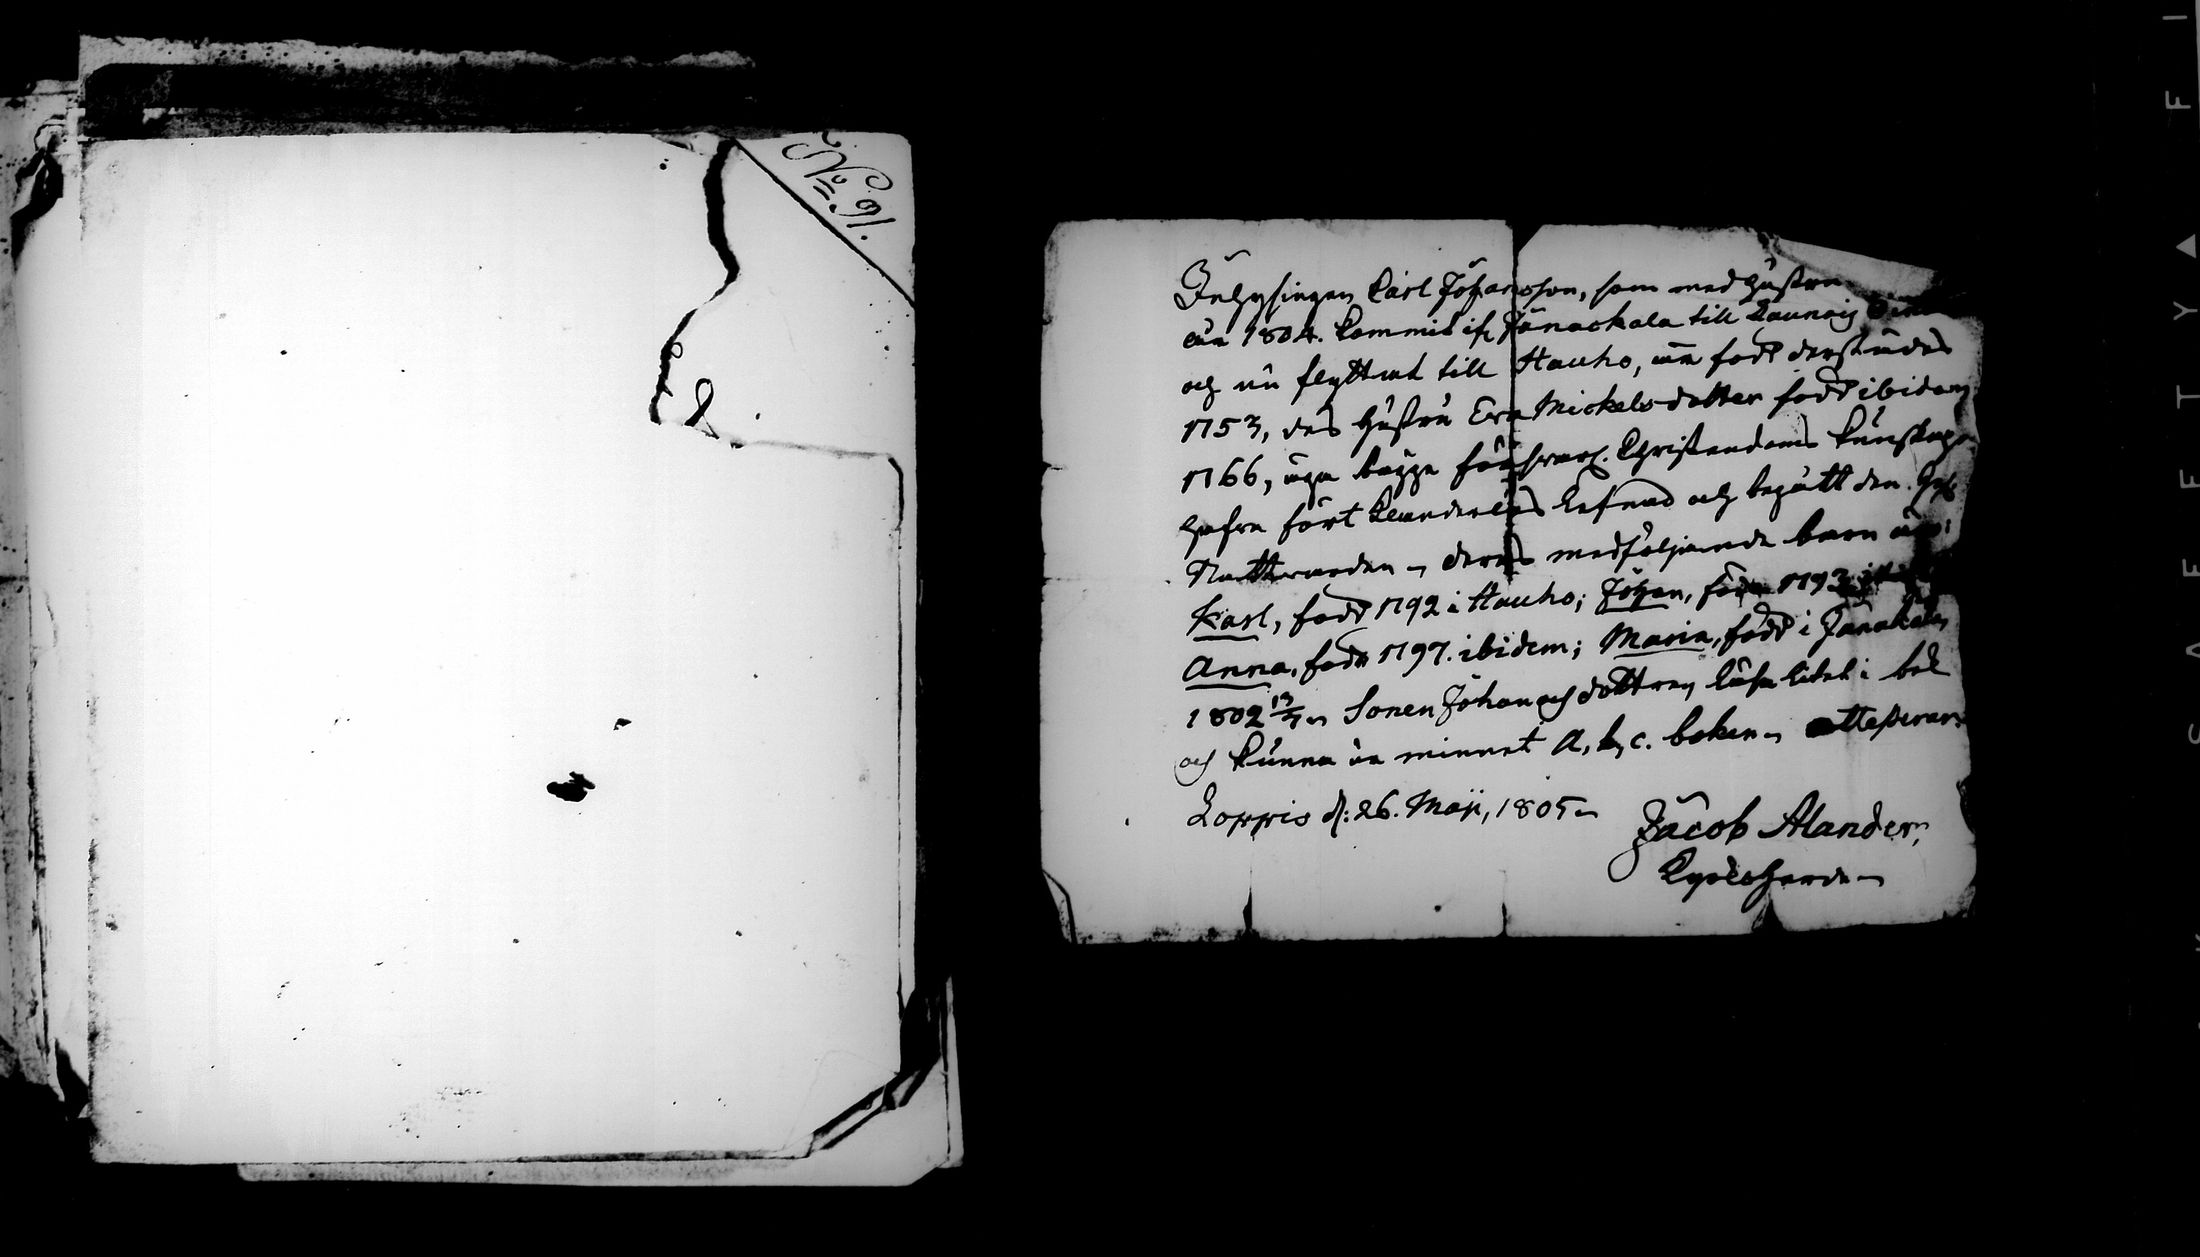 No 91.
Inhysingen Carl Johansson, som med hustru
1804. kommit ifr Janackala till Launois
och nu flyttat till Hauho, är född derstädes
1753, des hustru Eva Mickelsdotter född ibidem
1766, äga bägge försvarl. Christendoms kunskap
hafva fört klanderlös lefnad och begått den H.
Nattvarden, deras medföljande barn äro:
Karl, född 1792 i Hauho; Johan, född 1793
Anna, född 1797. ibidem; Maria, född i Janakala
1802 Sonen Johan och dottren läsa litet i bok
och kunna ur minnet A, b, c. boken, attesterar
Loppis d: 26. Maji, 1805
Jacob Alander,
Kyrkoherde